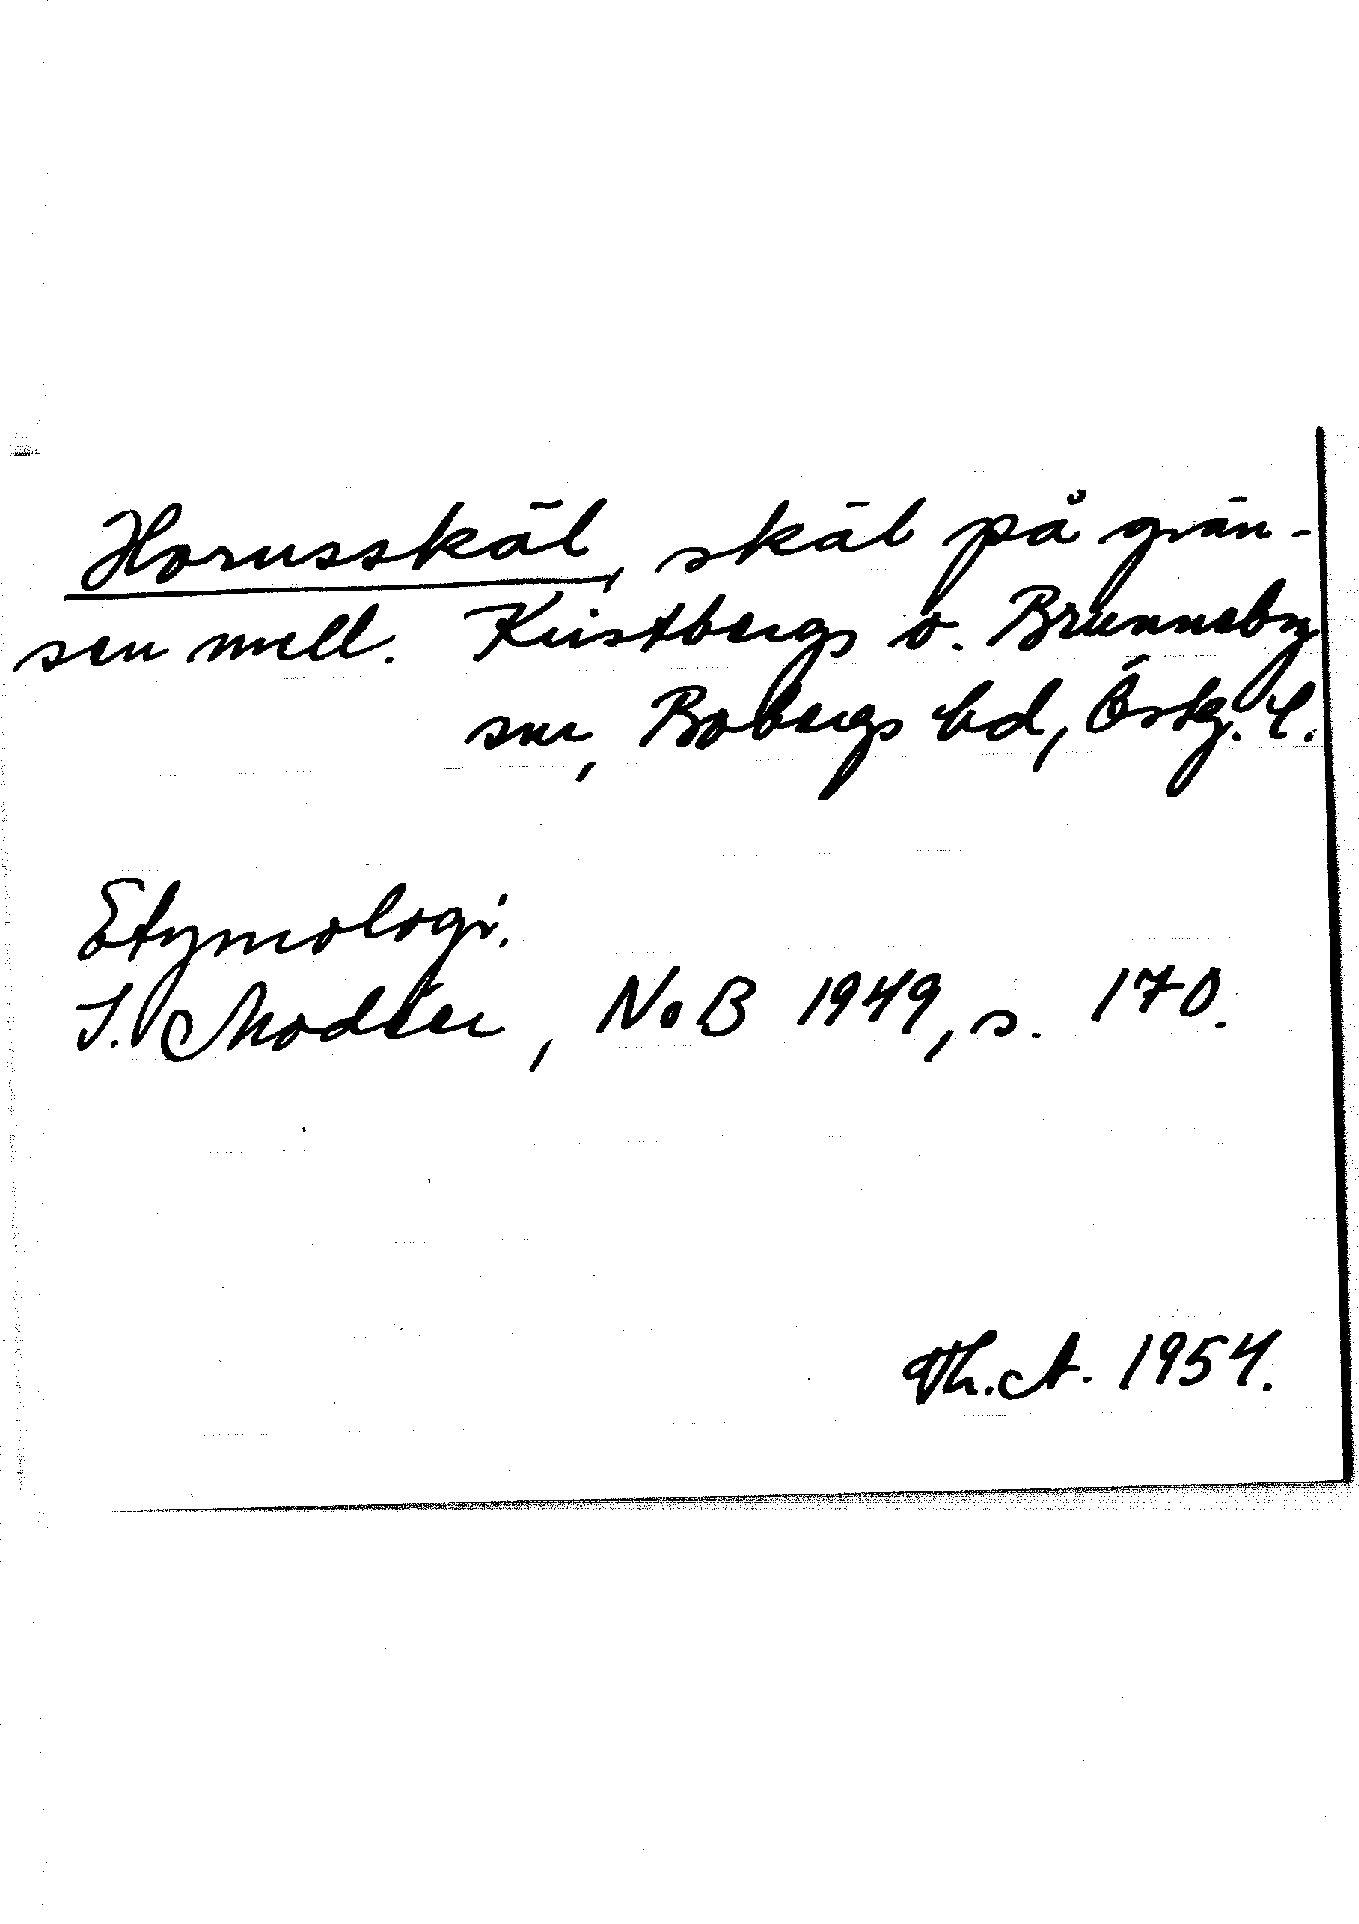 Horusskäl, skäl på grän-
sen mell. Kristbergs o. Brunneby
snr, Bobergs hd, Östg. l.
Etymologi.
I. Modéer, NoB 1949, s. 170.
Th. A. 1954.